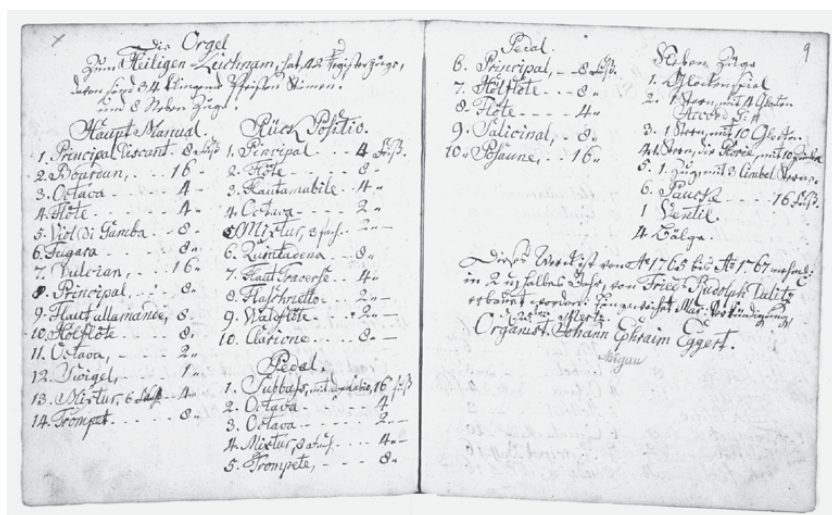 Die Orgel
Zum Heiligen Leichnam, hat 42 Registerzüge,
davon sind 34 klingende Stimen.
und 8 Neben Züge.
Haupt Manual.
1. Principal Discant 8 Fuß
2. Bourdun, 16 "
3. Octava 4 "
4. Flöte 4 "
5. Viol di Gamba 8 "
6. Fugara 8 "
7. Dulcian, 16 "
8. Principal, 8 "
9. Flaut allamande, 8
10. Holflöte 8 "
11. Octava, 2 "
12. 1 "
13. Mixtur, 6 4 "
14. Trompet 8 "
Rück Positiv.
1. Principal 4 Fuß.
2. Flöte 8 "
3. Flautamabile 4 "
4. Octava 2 "
5. Mixtur, 3 fach. 2 "
6. Quintadena 8 "
7. Flaut Traverse 4 "
8. 2 "
9. Waldflöte 2 "
10. Clarione 8 "
Pedal.
1. Subbass, 16 Fuß
2. Octava 4 "
3. Octava 2 "
4. Mixtur, 4 "
5. Trompete, 8 "
9
Pedal.
6. Principal, 8 Fuß.
7. Holflöte 8 "
8. Flöte 4 "
9. Salicinal, 8 "
10. Posaune, 16 "
Neben Züge
1. Glockenspiel
2. 1 Stern, mit 4 Glocken
Accord
3. 1 Stern, mit 10 Glocken.
4. 1 Stern, mit 10
5. 1. Zug mit 3 Cimbel Sterne.
6. Paucke 16 Fuß.
1 Ventil.
4 Bälge.
Dieses Werk ist von Aº 1765 bis Aº 1767
in Jahr, von Fried: Rudolph Dalitz
erbauet worden.
Organist, Johann Ephraim Eggert.